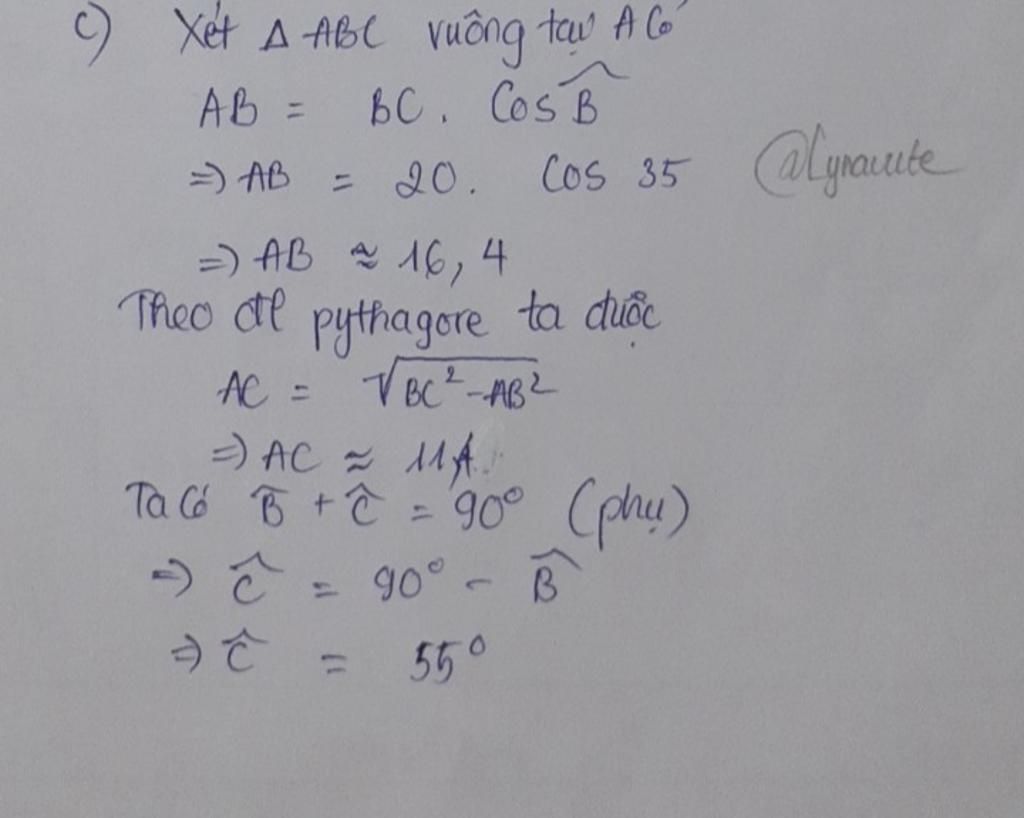 c) Xét Δ ABC vuông tại A có
AB = BC . Cos B̂
=> AB = 20. Cos 35
@Lynauute
=> AB ≈ 16,4
Theo đl pythagore ta được
AC = √BC² - AB²
=> AC ≈ 11
Ta có B̂ + Ĉ = 90° (phụ)
=> Ĉ = 90° - B̂
=> Ĉ = 55°